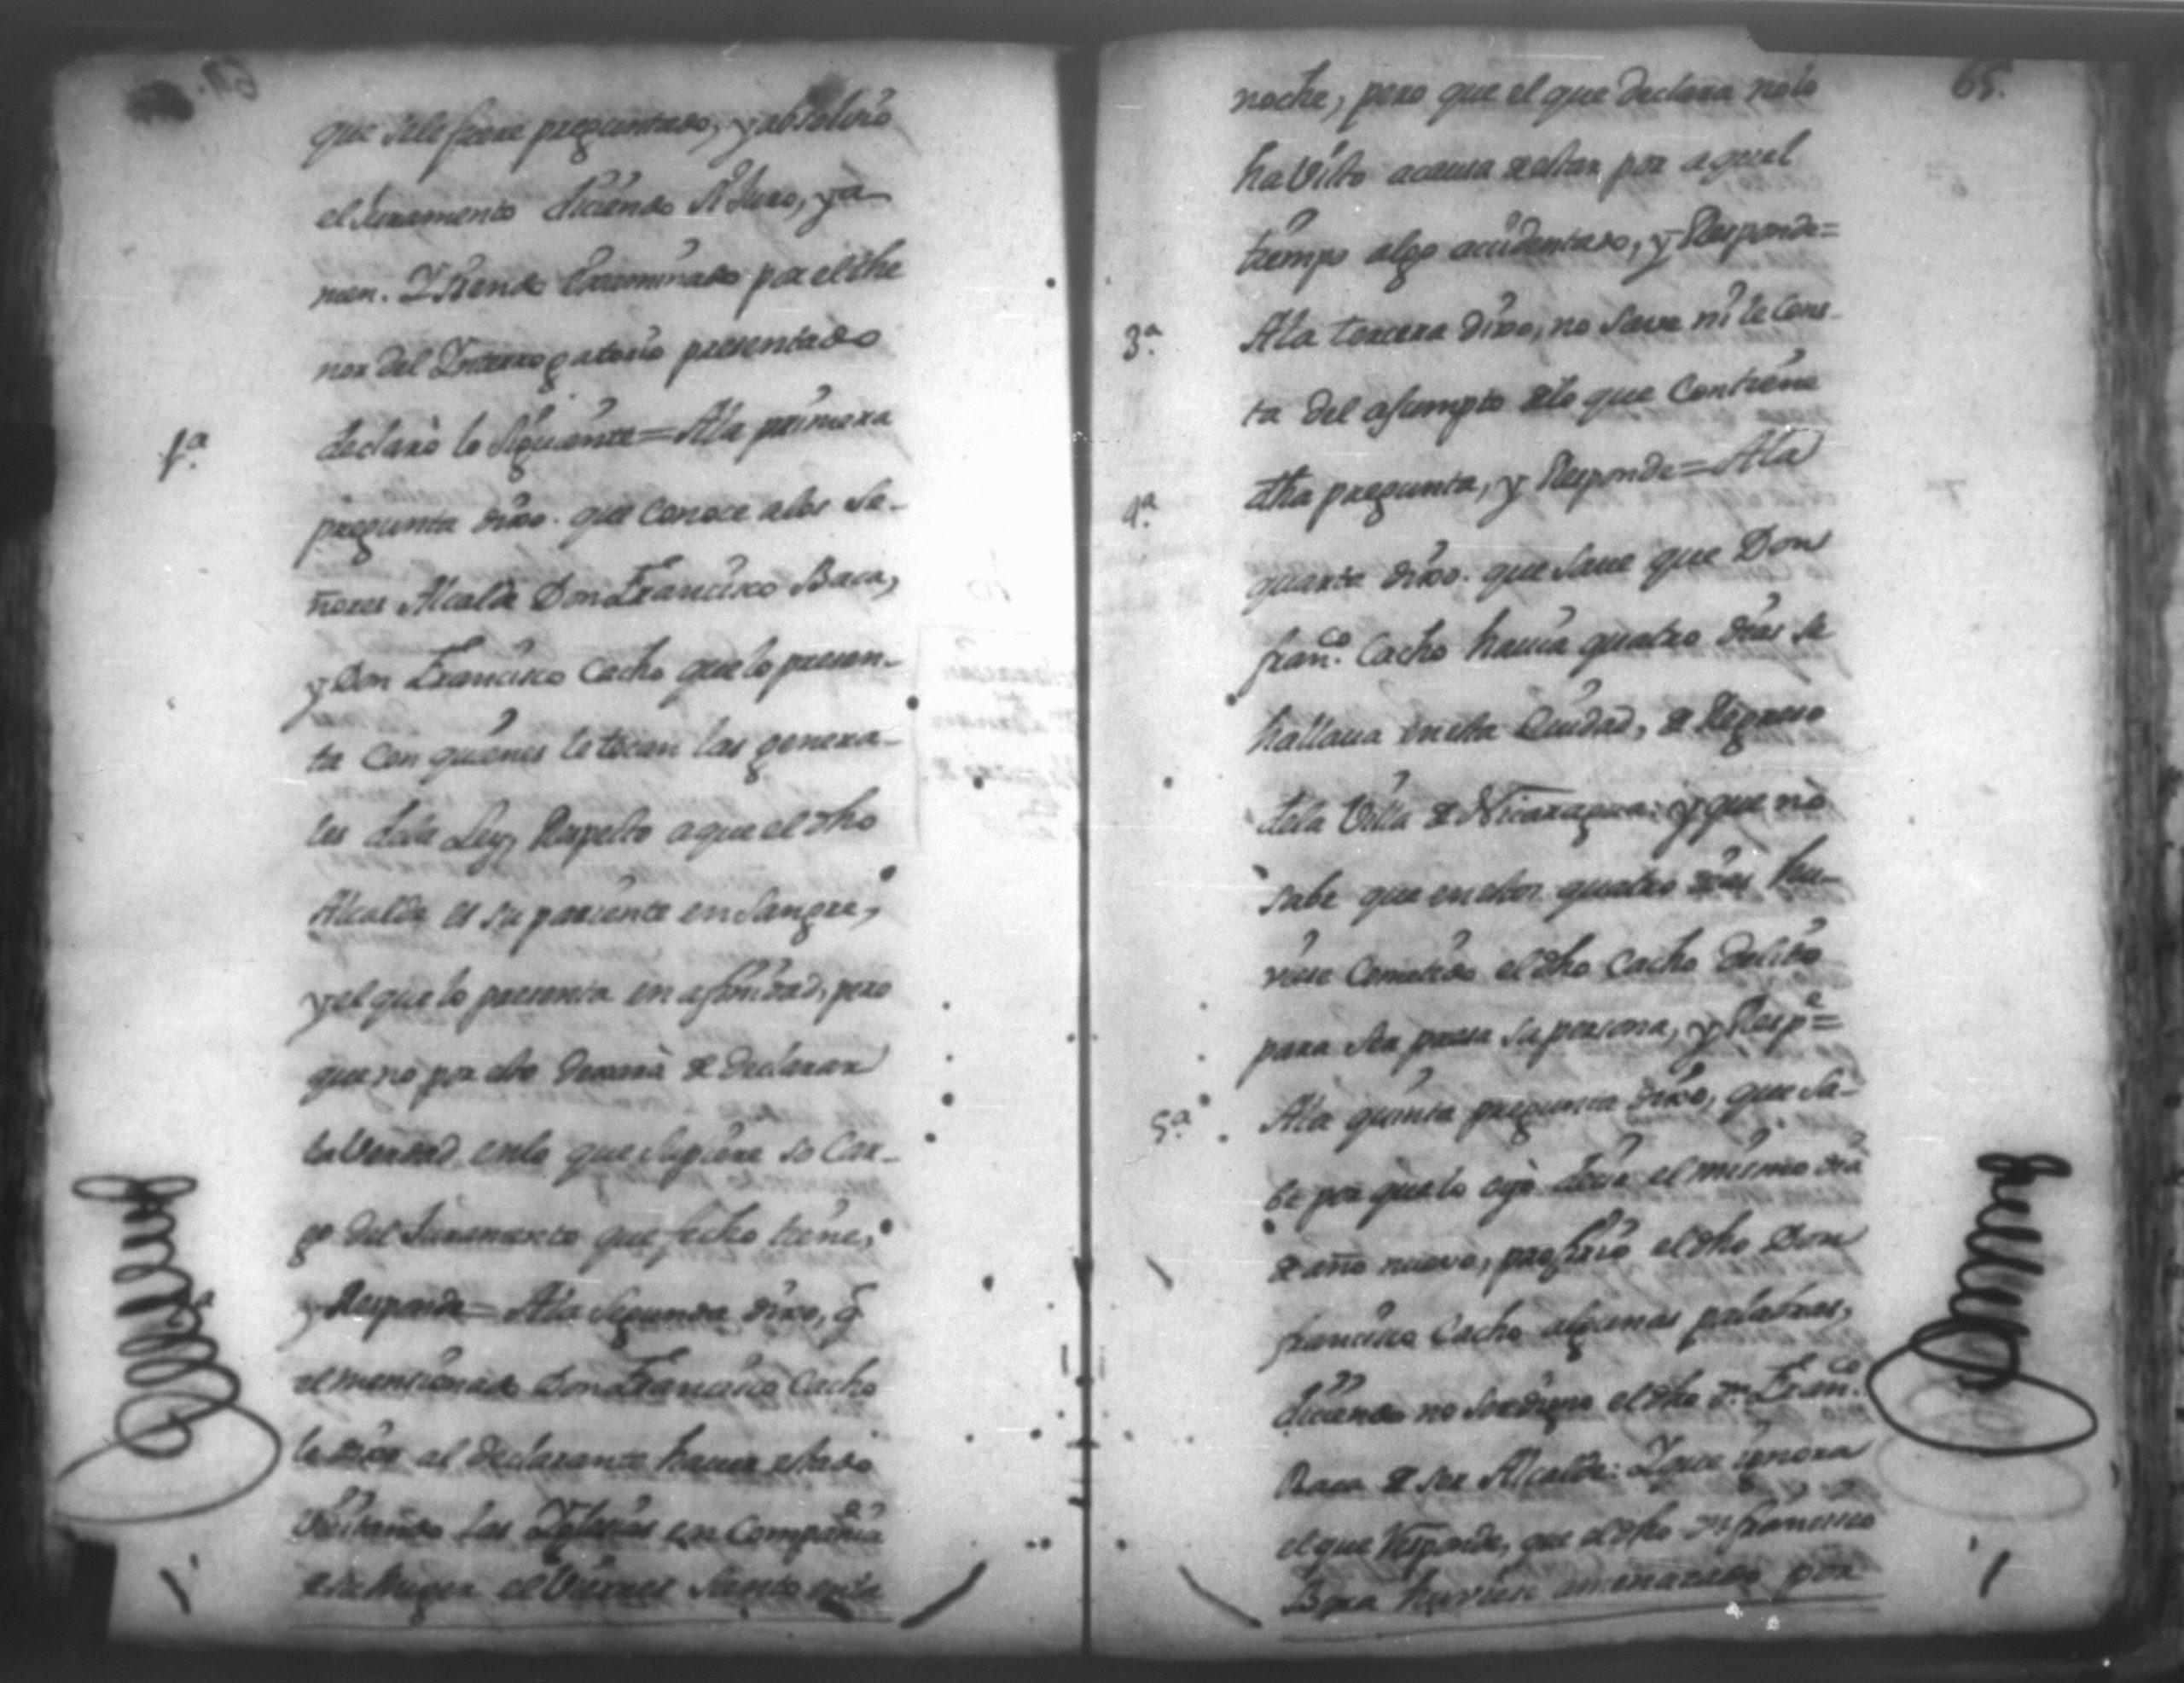 que sele fuere preguntado, y absolbio
el Juramento diciendo Si Juro, y a
men. Y Siendo Examinado por el the
nor del Interrogatorio presentado
1.ª
declarò lo Siguiente= A la primera
pregunta dixo. que Conoce a los Se-
ñores Alcalde Don Francisco Baca,
y Don Francisco Cacho que lo presen-
ta Con quienes le tocan las genera-
les dela Ley, Respecto a que el dho
Alcalde es su pariente en Sangre,
y el que lo presenta en afinidad, pero
que no por eso dexarà de declarar
la Verdad en lo que Supiere so Car-
go del Juramento que fecho tiene,
y Responde= A la Segunda dixo, q̃
el mensionado Don Francisco Cacho
le dixo al declarante haver estado
Vicitando las Yglesias en Compañia
de su Muger el Viernes Santo en la
65.
noche, pero que el que declara no lo
ha Visto acausa de estar por aquel
tiempo algo accidentado, y Responde=
3.ª
A la tercera dixo, no Save ni le Cons-
ta del asumpto de lo que Contiene
dha pregunta, y Responde= A la
4.ª
quarta dixo. que Save que Don
Fran.co Cacho havia quatro dias se
hallava en esta Ciudad, de Regreso
dela Villa de Nicaragua: y que no
sabe que en estos quatro dias hu-
viese Cometido el dho Cacho delito
para ser presa su persona, y Resp.e=
5.ª
A la quinta pregunta dixo, que Sa-
be por que lo oyò decir el mismo dia
de año nuevo, profirió el dho Don
Francisco Cacho algunas palabras,
diciendo no ser digno el dho Dn. Fran.co
Baca de ser Alcalde: Y que ignora
el que Responde, que el dho Dn Francisco
Baca huviese amenazado por